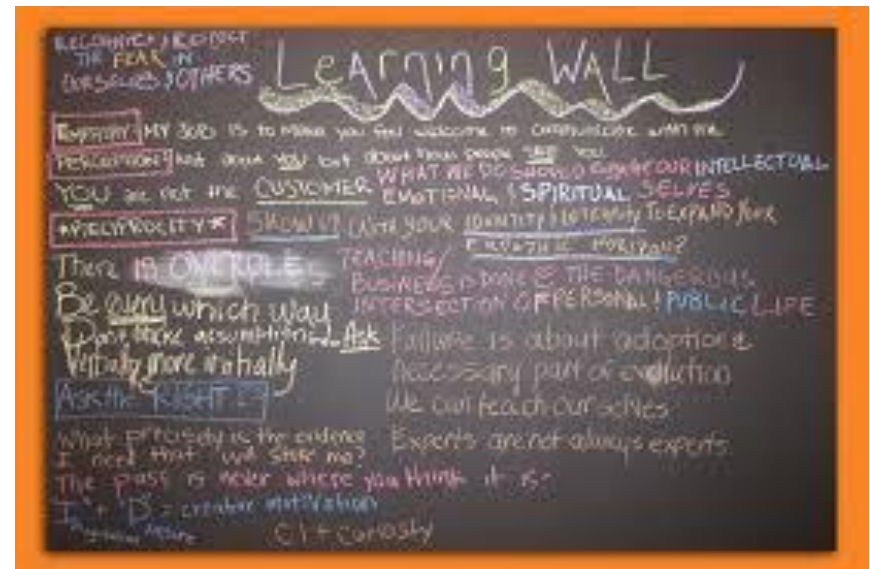 RECOGNIZE & RESPECT
THE FEAR IN
OURSELVES & OTHERS
LeArning WALL
EMPATHY MY JOB IS to make you feel welcome to communicate with me
PERCEPTION not about YOU but about how people SEE YOU
WHAT WE DO SHOULD ENGAGE OUR INTELLECTUAL
EMOTIONAL & SPIRITUAL SELVES
YOU are not the CUSTOMER
*RECIPROCITY*
SHOW UP WITH YOUR IDENTITY & INTEGRITY TO EXPAND YOUR
HORIZON?
There IS
TEACHING/
BUSINESS IS DONE @ THE DANGEROUS
INTERSECTION OF PERSONAL & PUBLIC LIFE
Be every which way
Don't make assumptions. Ask
more initially
ASK the RIGHT ?s
Failure is about adoption &
Accessary part of evolution
We can teach ourselves
Experts are not always experts.
What precisely is the evidence
I need that will
The past is never where you think it is-
I + D = creative motivation
+ curiosty